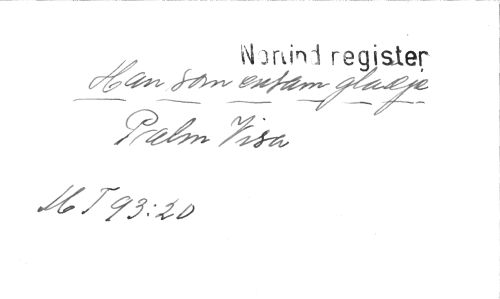 Norlind register
Han som ensam gladje
Psalm Visa
MT 93:20